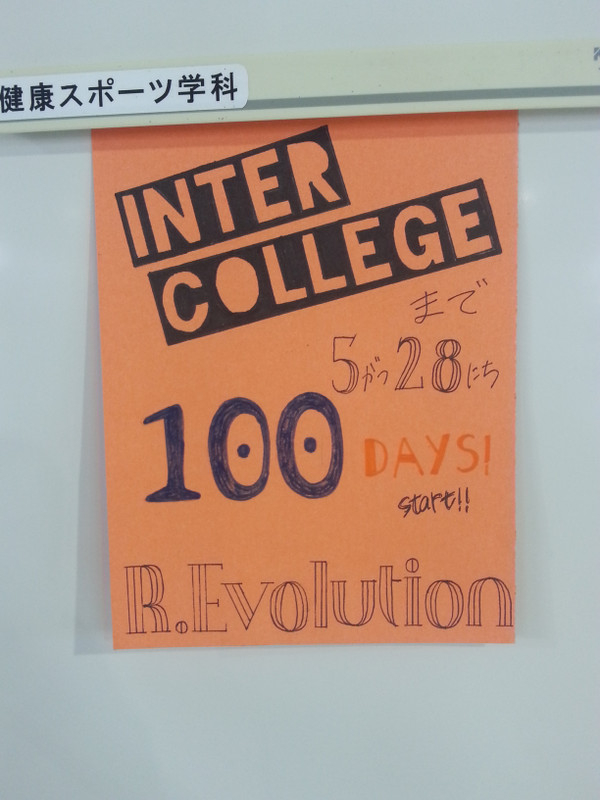 健康スポーツ学科
INTER
COLLEGE
まで
5がつ28にち
100 DAYS!
start!!
R.Evolution